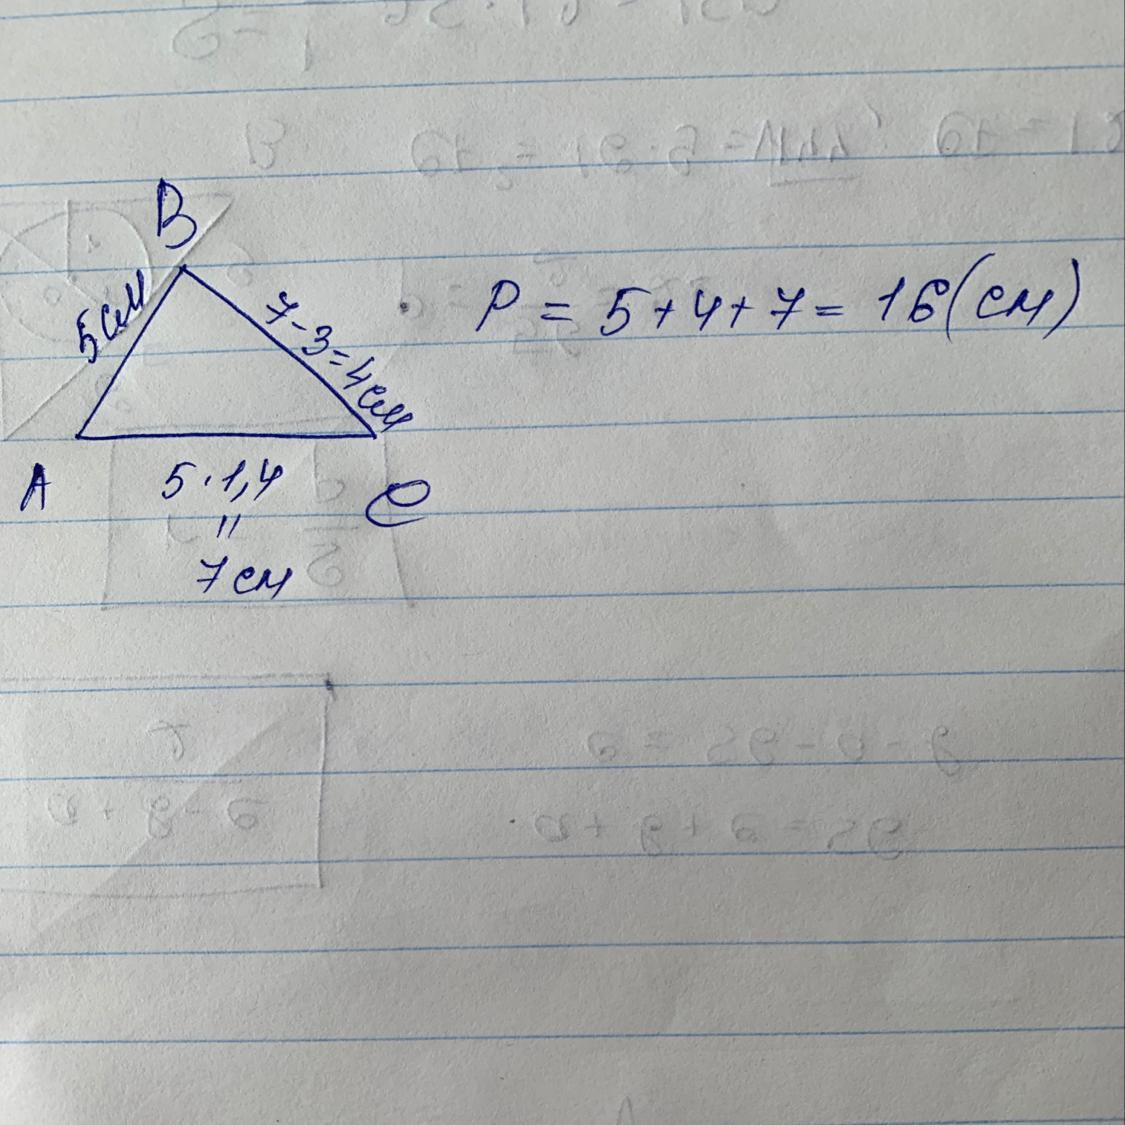 B
5см
7-3=4см
P = 5+4+7= 16(см)
A
5·1,4
C
"
7см